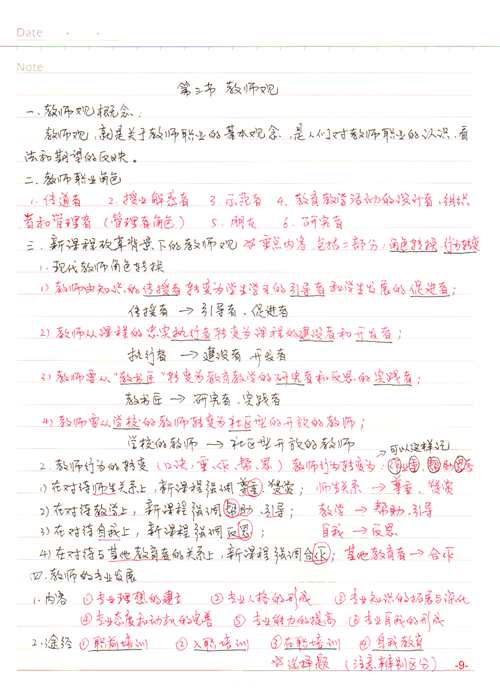 Date
Note
第三节 教师观
一.教师观概念:
教师观,就是关于教师职业的基本观念,是人们对教师职业的认识、看
法和期望的反映。
二.教师职业角色
1.传道者 2.授业解惑者 3.示范者 4.教育教学活动的设计者、组织
者和管理者(管理者角色) 5.朋友 6.研究者
三.新课程改革背景下的教师观 重点内容 包括二部分:角色转换 行为转变
1.现代教师角色转换
1)教师由知识的传授者转变为学生学习的引导者和学生发展的促进者;
传授者→引导者、促进者
2)教师从课程的忠实执行者转变为课程的建设者和开发者;
执行者→建设者、开发者
3)教师要从“教书匠”转变为教育教学的研究者和反思的实践者;
教书匠→研究者、实践者
4)教师要从学校的教师转变为社区型的开放的教师;
学校的教师→社区型开放的教师
→可以这样记
2.教师行为的转变 教师行为转变为:
1)在对待师生关系上,新课程强调尊重、赞赏; 师生关系→尊重、赞赏
2)在对待教学上,新课程强调帮助、引导; 教学→帮助、引导
3)在对待自我上,新课程强调反思; 自我→反思
4)在对待与其他教育者的关系上,新课程强调合作; 其他教育者→合作
四.教师的专业发展
1.内容 ①专业理想的建立 ②专业人格的形成 ③专业知识的拓展与深化
④专业态度和动机的完善 ⑤专业能力的提高 ⑥专业自我的形成
2.途径 ①职前培训 ②入职培训 ③在职培训 ④自我教育
☆选择题(注意辨别区分)
-9-